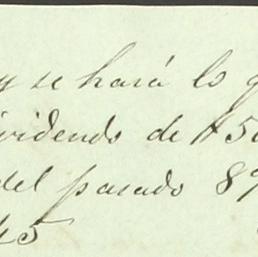 y se hará lo q
ividendo de $50
del pasado 89
45